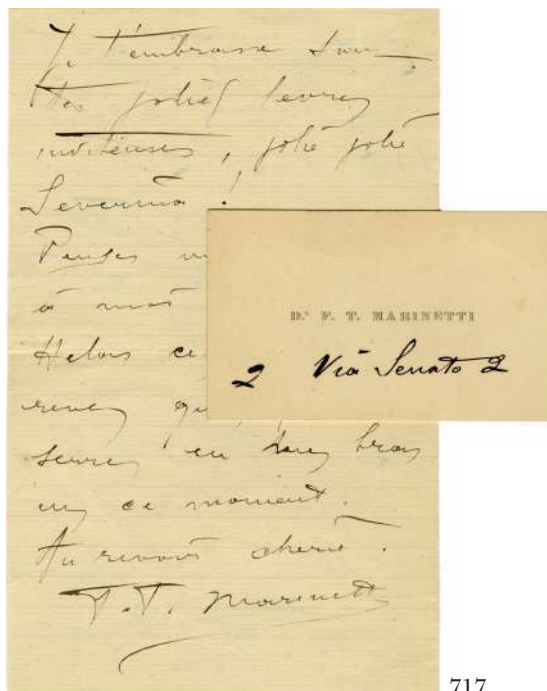 Je t'embrasse sur
tes jolies levres
, jolie jolie
Severina !
Penses
à moi
Helas ce
reves qu
serres en tes bras
en ce moment.
Au revoir cherie.
F. T. Marinetti
Dr F. T. MARINETTI
2 Via Senato 2
717